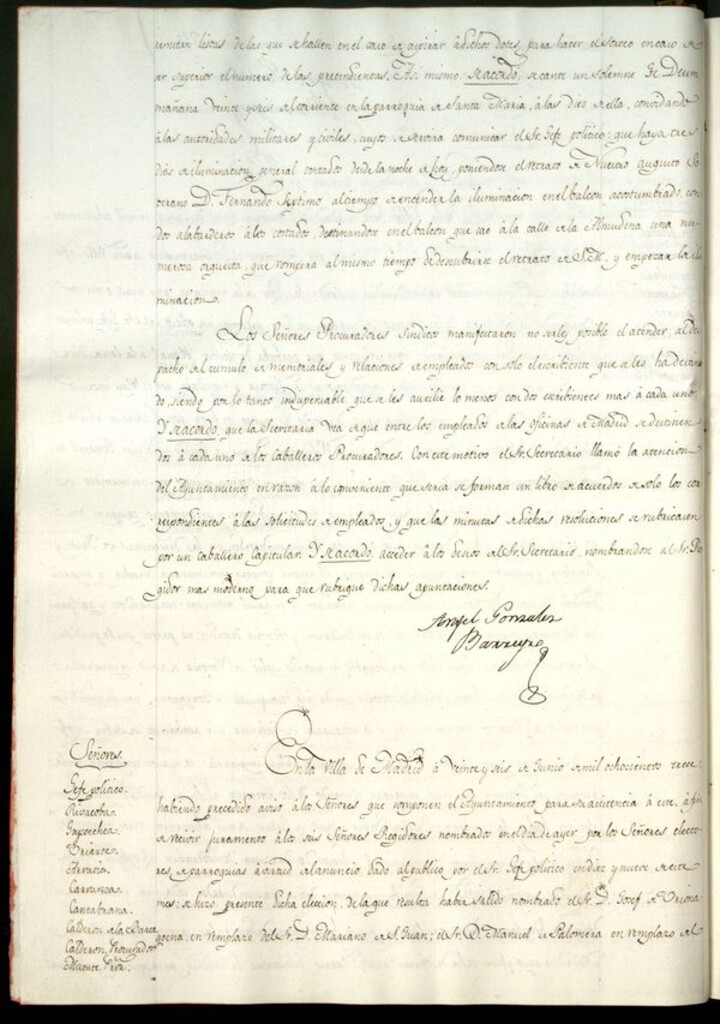 remitan listas de las que se hallen en el caso de aspirar á dichos dotes, para hacer el sorteo en caso de
ser superior el numero de las pretendientas. Asi mismo se acordó, se cante un solemne Te Deum
mañana veinte y seis del corriente en la parroquia de Santa Maria, á las diez de ella, convidando
á las autoridades militares y civiles, cuyos se servira comunicar el Sr. Gefe politico: que haya tres
dias de iluminacion general contados desde la noche de hoy, poniendose el retrato de Nuestro augusto So-
berano D. Fernando Septimo al tiempo de encender la iluminacion en el balcon acostumbrado, con
dos alabarderos á los costados, destinandose en el balcon que cae á la calle de la Almudena una nu-
merosa orquesta, que rompira al mismo tiempo de descubrirse el retrato de S.M. y empezar la ilu-
minacion.
Los Señores Procuradores Sindicos manifestaron no serles posible el atender al des-
pacho del cumulo de memoriales y relaciones de empleados con solo el escribiente que se les ha destina-
do, siendo por lo tanto indispensable que se les auxilie lo menos con dos escribientes mas á cada uno.
Y se acordó, que la Secretaria vea de que entre los empleados de las oficinas de Madrid se destinen
dos á cada uno de los Caballeros Procuradores. Con este motivo el Sr. Secretario llamó la atencion
del Ayuntamiento en razon á lo conveniente que seria se formase un libro de acuerdos de solo los cor-
respondientes á las solicitudes de empleados, y que las minutas de dichas resoluciones se rubricasen
por un caballero Capitular. Y se acordó, acceder á los deseos del Sr. Secretario, nombrandose al Sr. Re-
gidor mas moderno para que rubrique dichas apuntaciones.
Angel Gonzalez
Barreyro
Señores.
Gefe politico.
Uriarte.
Arratia.
Carranza.
Calderon de la Barca
Calderon, Procurador
En la Villa de Madrid á veinte y seis de Junio de mil ochocientos trece:
habiendo precedido aviso á los Señores que componen el Ayuntamiento para su asistencia á este, á fin
de recivir juramento á los seis Señores Regidores nombrados en el dia de ayer por los Señores electo-
res de parroquias á virtud del anuncio dado al publico por el Sr. Gefe politico en diez y nueve de este
mes: se hizo presente dicha eleccion, de la que resulta haber salido nombrado el Sr. D. Josef de Uriona-
goena, en remplazo del Sr. D. Mariano de S. Juan; el Sr. D. Manuel de Palomera en remplazo del